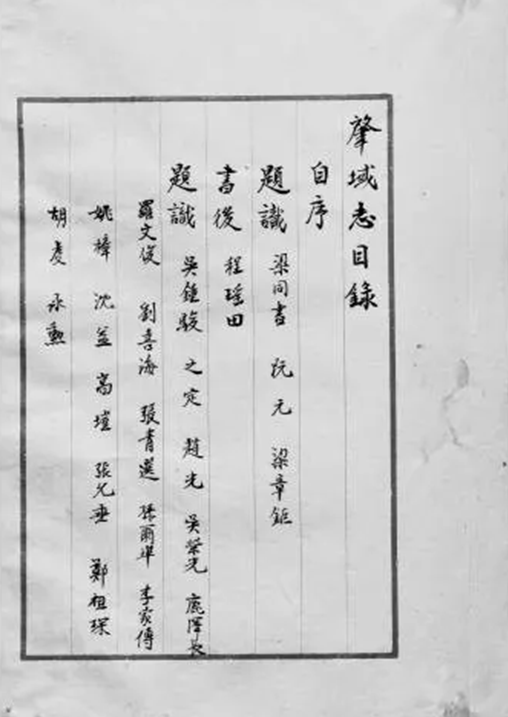 肇域志目錄
自序
題識 梁同書 阮元 梁章鉅
書後 程瑤田
題識 吳鍾駿 之定 趙光 吳榮光 鹿澤長
羅文俊 劉喜海 張青選 孫爾準 李家傳
姚樟 沈益 高塏 張允垂 鄭祖琛
胡虔 永勲